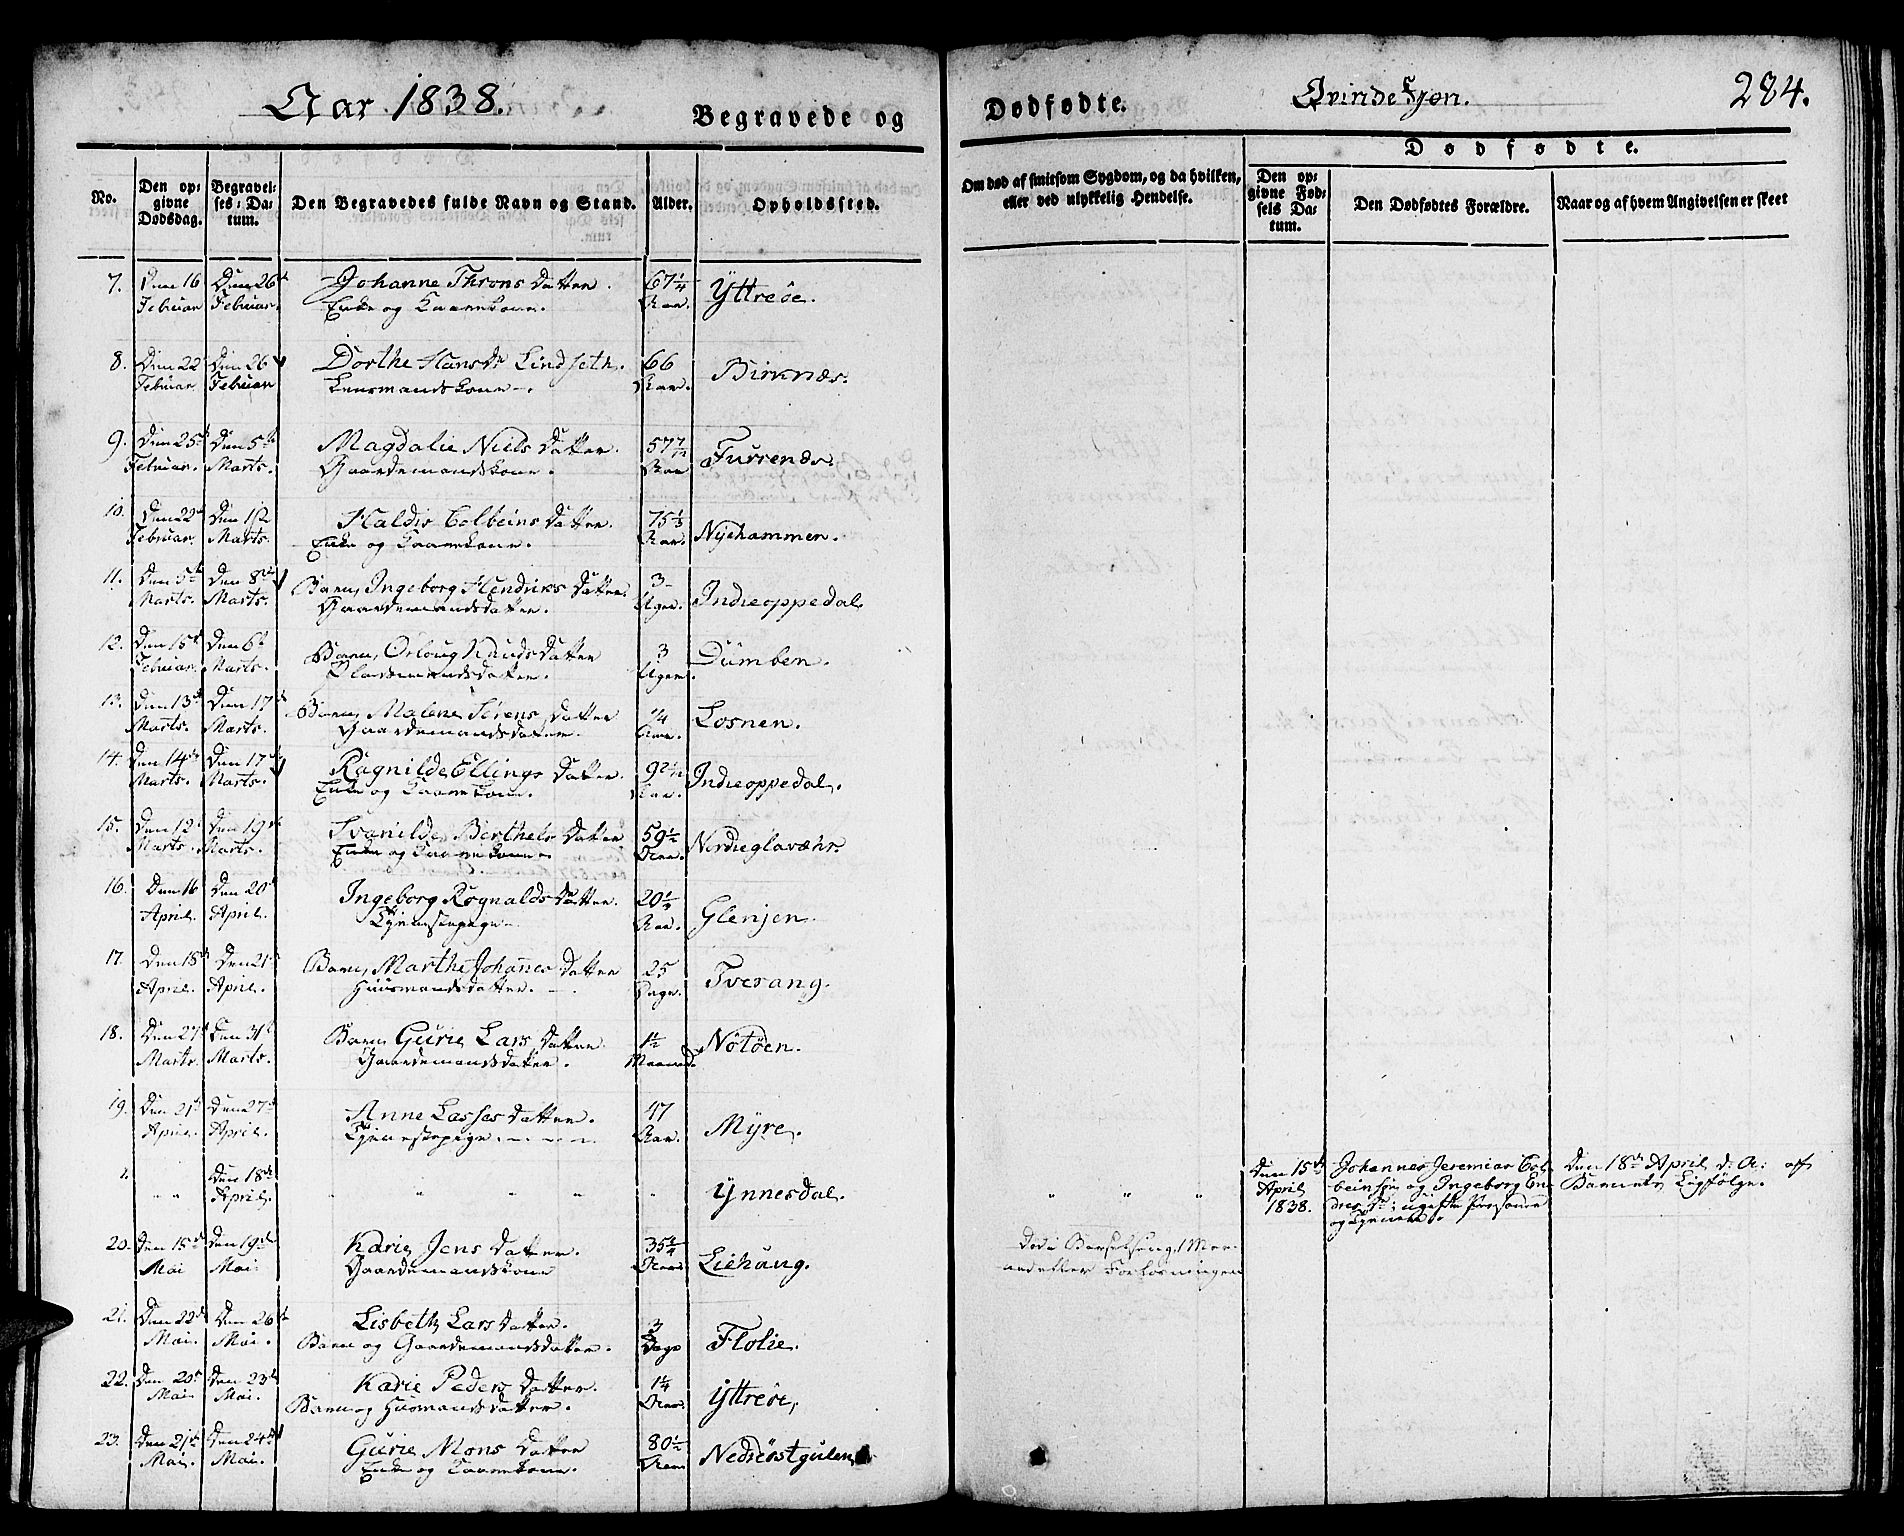 Aar 1838.
Begravede og
Dødfødte.
Qvinde Kjøn.
284.
No.
Den opgivne Dødsdag.
Begravelses-Datum.
Den Begravedes fulde Navn og Stand.
Alder.
Opholdssted.
Om død af smitsom Sygdom, og da hvilken, eller ved ulykkelig Hendelse.
Dødfødte.
Den opgivne Fødsels Datum.
Den Dødfødtes Forældre.
Naar og af hvem Angivelsen er skeet
7. Den 16 Den 26de Johanne Throns Datter. 67 1/4 Yttreöe.
Februar Februar. Enke og Kaarekone. Aar.
8. Den 22 Den 26 Dorthe Hansdr Lindseth. 66 Birknæs.
Februar Februar Lensmandskone Aar.
9. Den 25de Den 5te Magdalie Niels Datter. 57 7/12 Furrenæs.
Februar. Marts. Gaardemandskone. Aar
10. Den 22de Den 1ste Haldis Colbeins Datter. 75 1/3 Nyehammer.
Februar. Marts. Enke og Kaarekone. Aar.
11. Den 5te Den 8de Barn, Ingeborg Hendriks Datter. 3 Indreoppedal.
Marts. Marts. Gaardemandsdatter. Uger.
12. Den 15de Den 6te Barn, Orloug Knuds Datter 3 Dumben.
Februar. Marts. Pladsmandsdatter. Uger.
13. Den 13de Den 17de Barn, Malene Sörens Datter 1/4 Losnen.
Marts. Marts. Gaardemandsdatter. Aar.
14. Den 14de Den 17de Ragnilde Ellings Datter. Indreoppedal.
Marts. Marts. Enke og Kaarekone. Aar.
15. Den 12te Den 19de Svanilde Berthels Datter 59 1/2 Nordreglavæhr.
Marts. Marts. Enke og Kaarekone. Aar.
16. Den 16 Den 20de Ingeborg Rognalds Datter. Glenjen.
April. April. Tjenestepige. Aar.
17. Den 18de Den 21de Barn, Marthe Johannes Datter 25 Tverang.
April. April. Huusmandsdatter. Dage.
18. Den 27de Den 31te Barn, Gurie Lars Datter. 1 1/2 Nötöen.
Marts. Marts. Gaardemandsdatter. Maaned.
19. Den 21de Den 27de Anne Lasses Datter. 47 Myre.
April. April. Tjenestepige. Aar.
1. " " Den 18de " " " " Ynnesdal. " " " Den 15de Johannes Jeremias Col- Den 18de April d: A: af
April. April beinsön og Ingeborg En- Barnets Ligfölge.
1838. dres Dr: ugifte Personer
og Tjenere.
20. Den 15de Den 19de Karie Jens Datter. 35 3/4 Liehaug. Död i Barselseng, 1 Maa-
Mai Mai. Gaardemandskone Aar. ned efter Forlösningen
21. Den 22de Den 26de Lisbeth Lars Datter. 3 Flolie.
Mai. Mai. Barn og Gaardemandsdatter. Dage
22. Den 20de Den 23de Karie Peders Datter. 1 1/4 Yttreöe,
Mai. Mai. Barn og Husmandsdatter. Aar.
23. Den 21de Den 24de Gurie Mons Datter 80 1/2 Nedreöstgulen
Mai. Mai. Enke og Kaarekone. Aar.